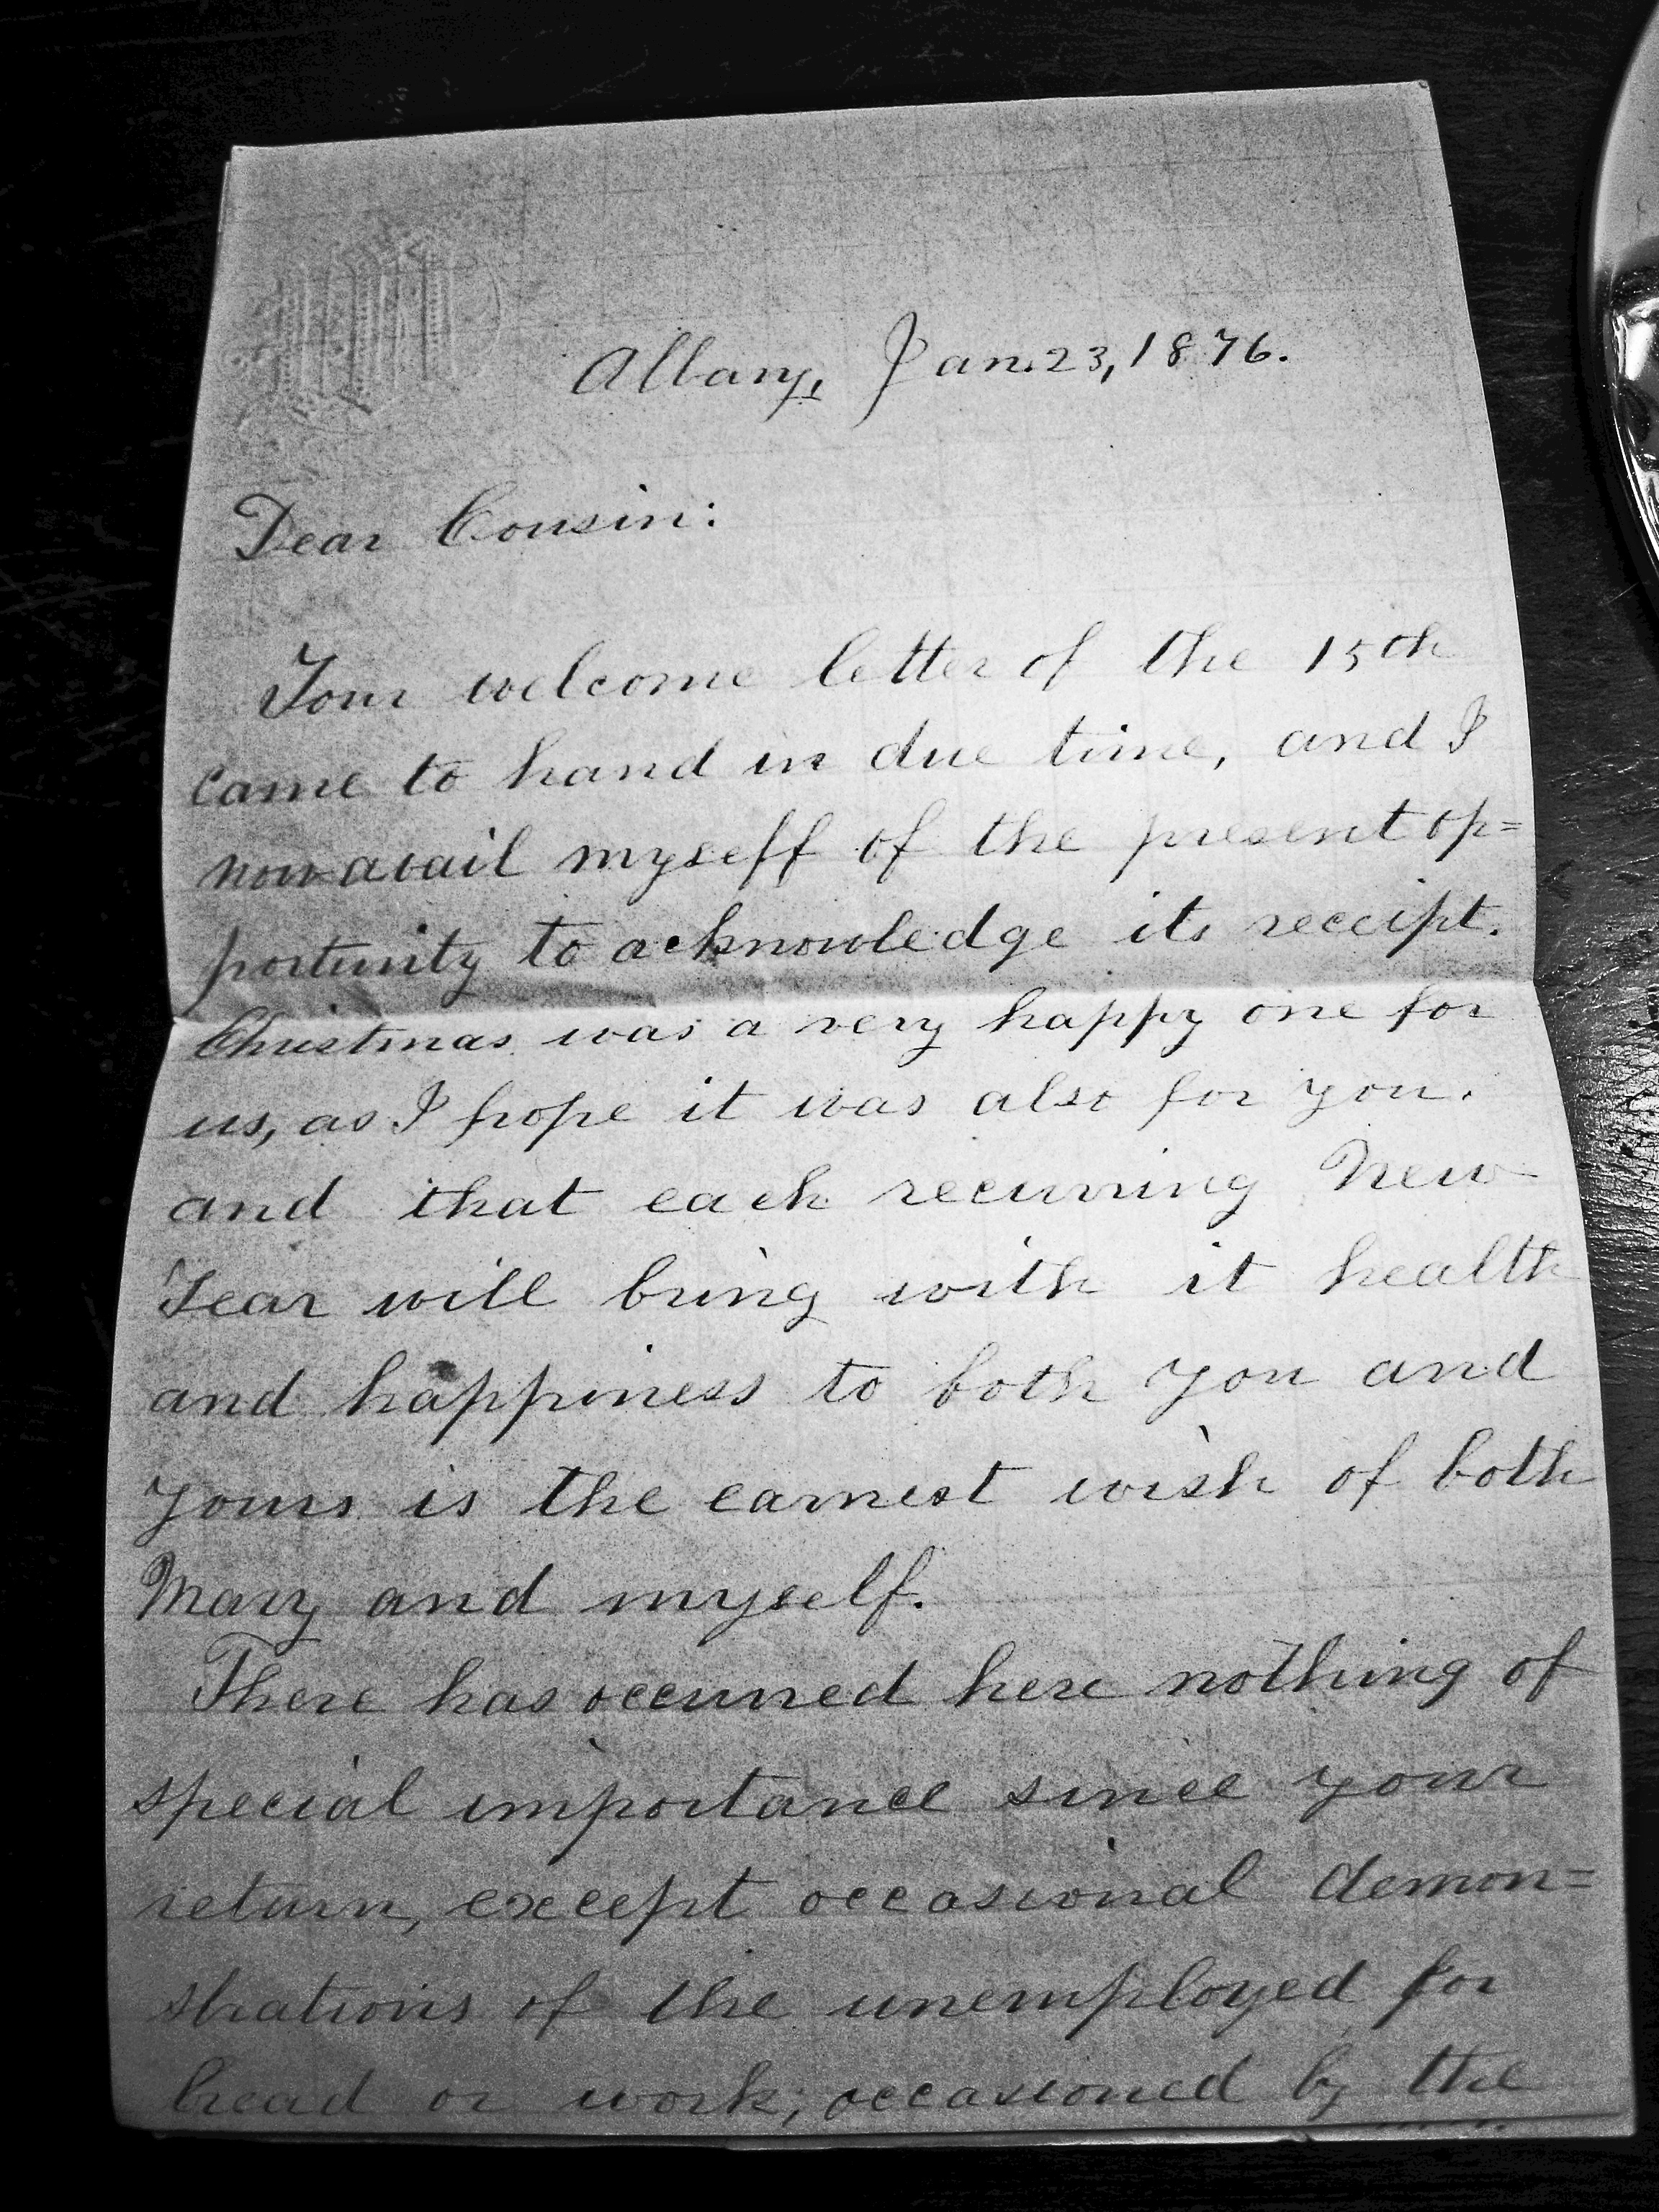 Albany, Jan. 23, 1876.
Dear Cousin:
Your welcome letter of the 15th
came to hand in due time, and I
now avail myself of the present op=
portunity to acknowledge its receipt.
Christmas was a very happy one for
us, as I hope it was also for you.
and that each recurring New
Year will bring with it health
and happiness to both you and
yours is the earnest wish of both
Mary and myself.
There has occurred here nothing of
special importance since your
return, except occasional demon=
strations of the unemployed for
bread or work; occasioned by the